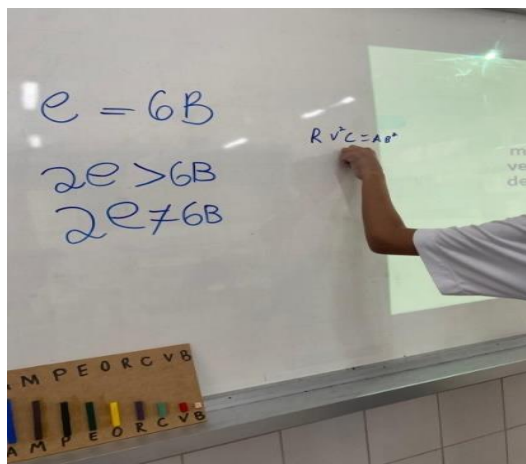 e = 6B
2e > 6B
2e ≠ 6B
R V²C = A B²
m
ve
de
M P E O R C V B
A M P E O R C V B